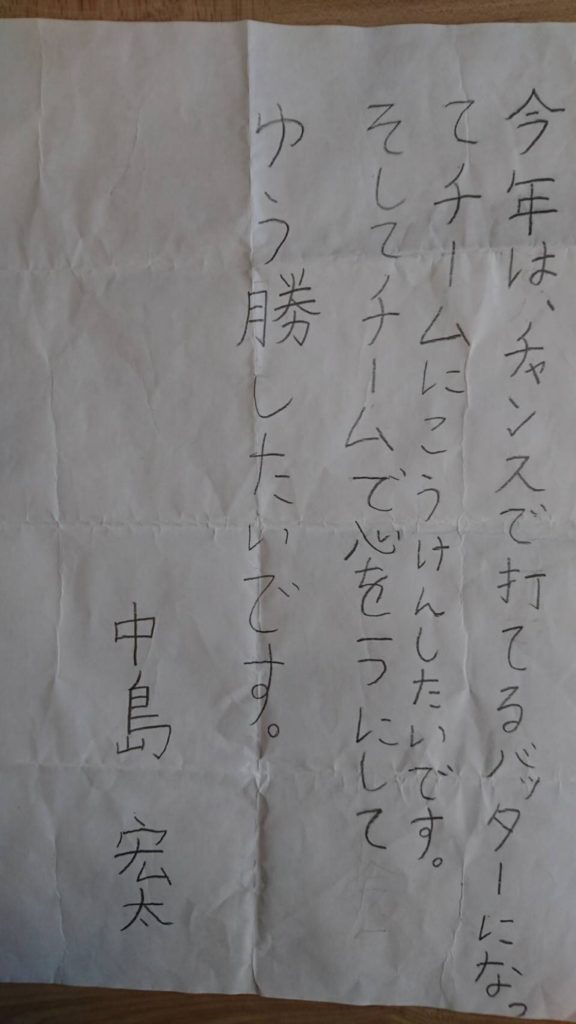 今年は、チャンスで打てるバッターになっ
てチームにこうけんしたいです。
そしてチームで心を一つにして
ゆう勝したいです。
中島 宏太